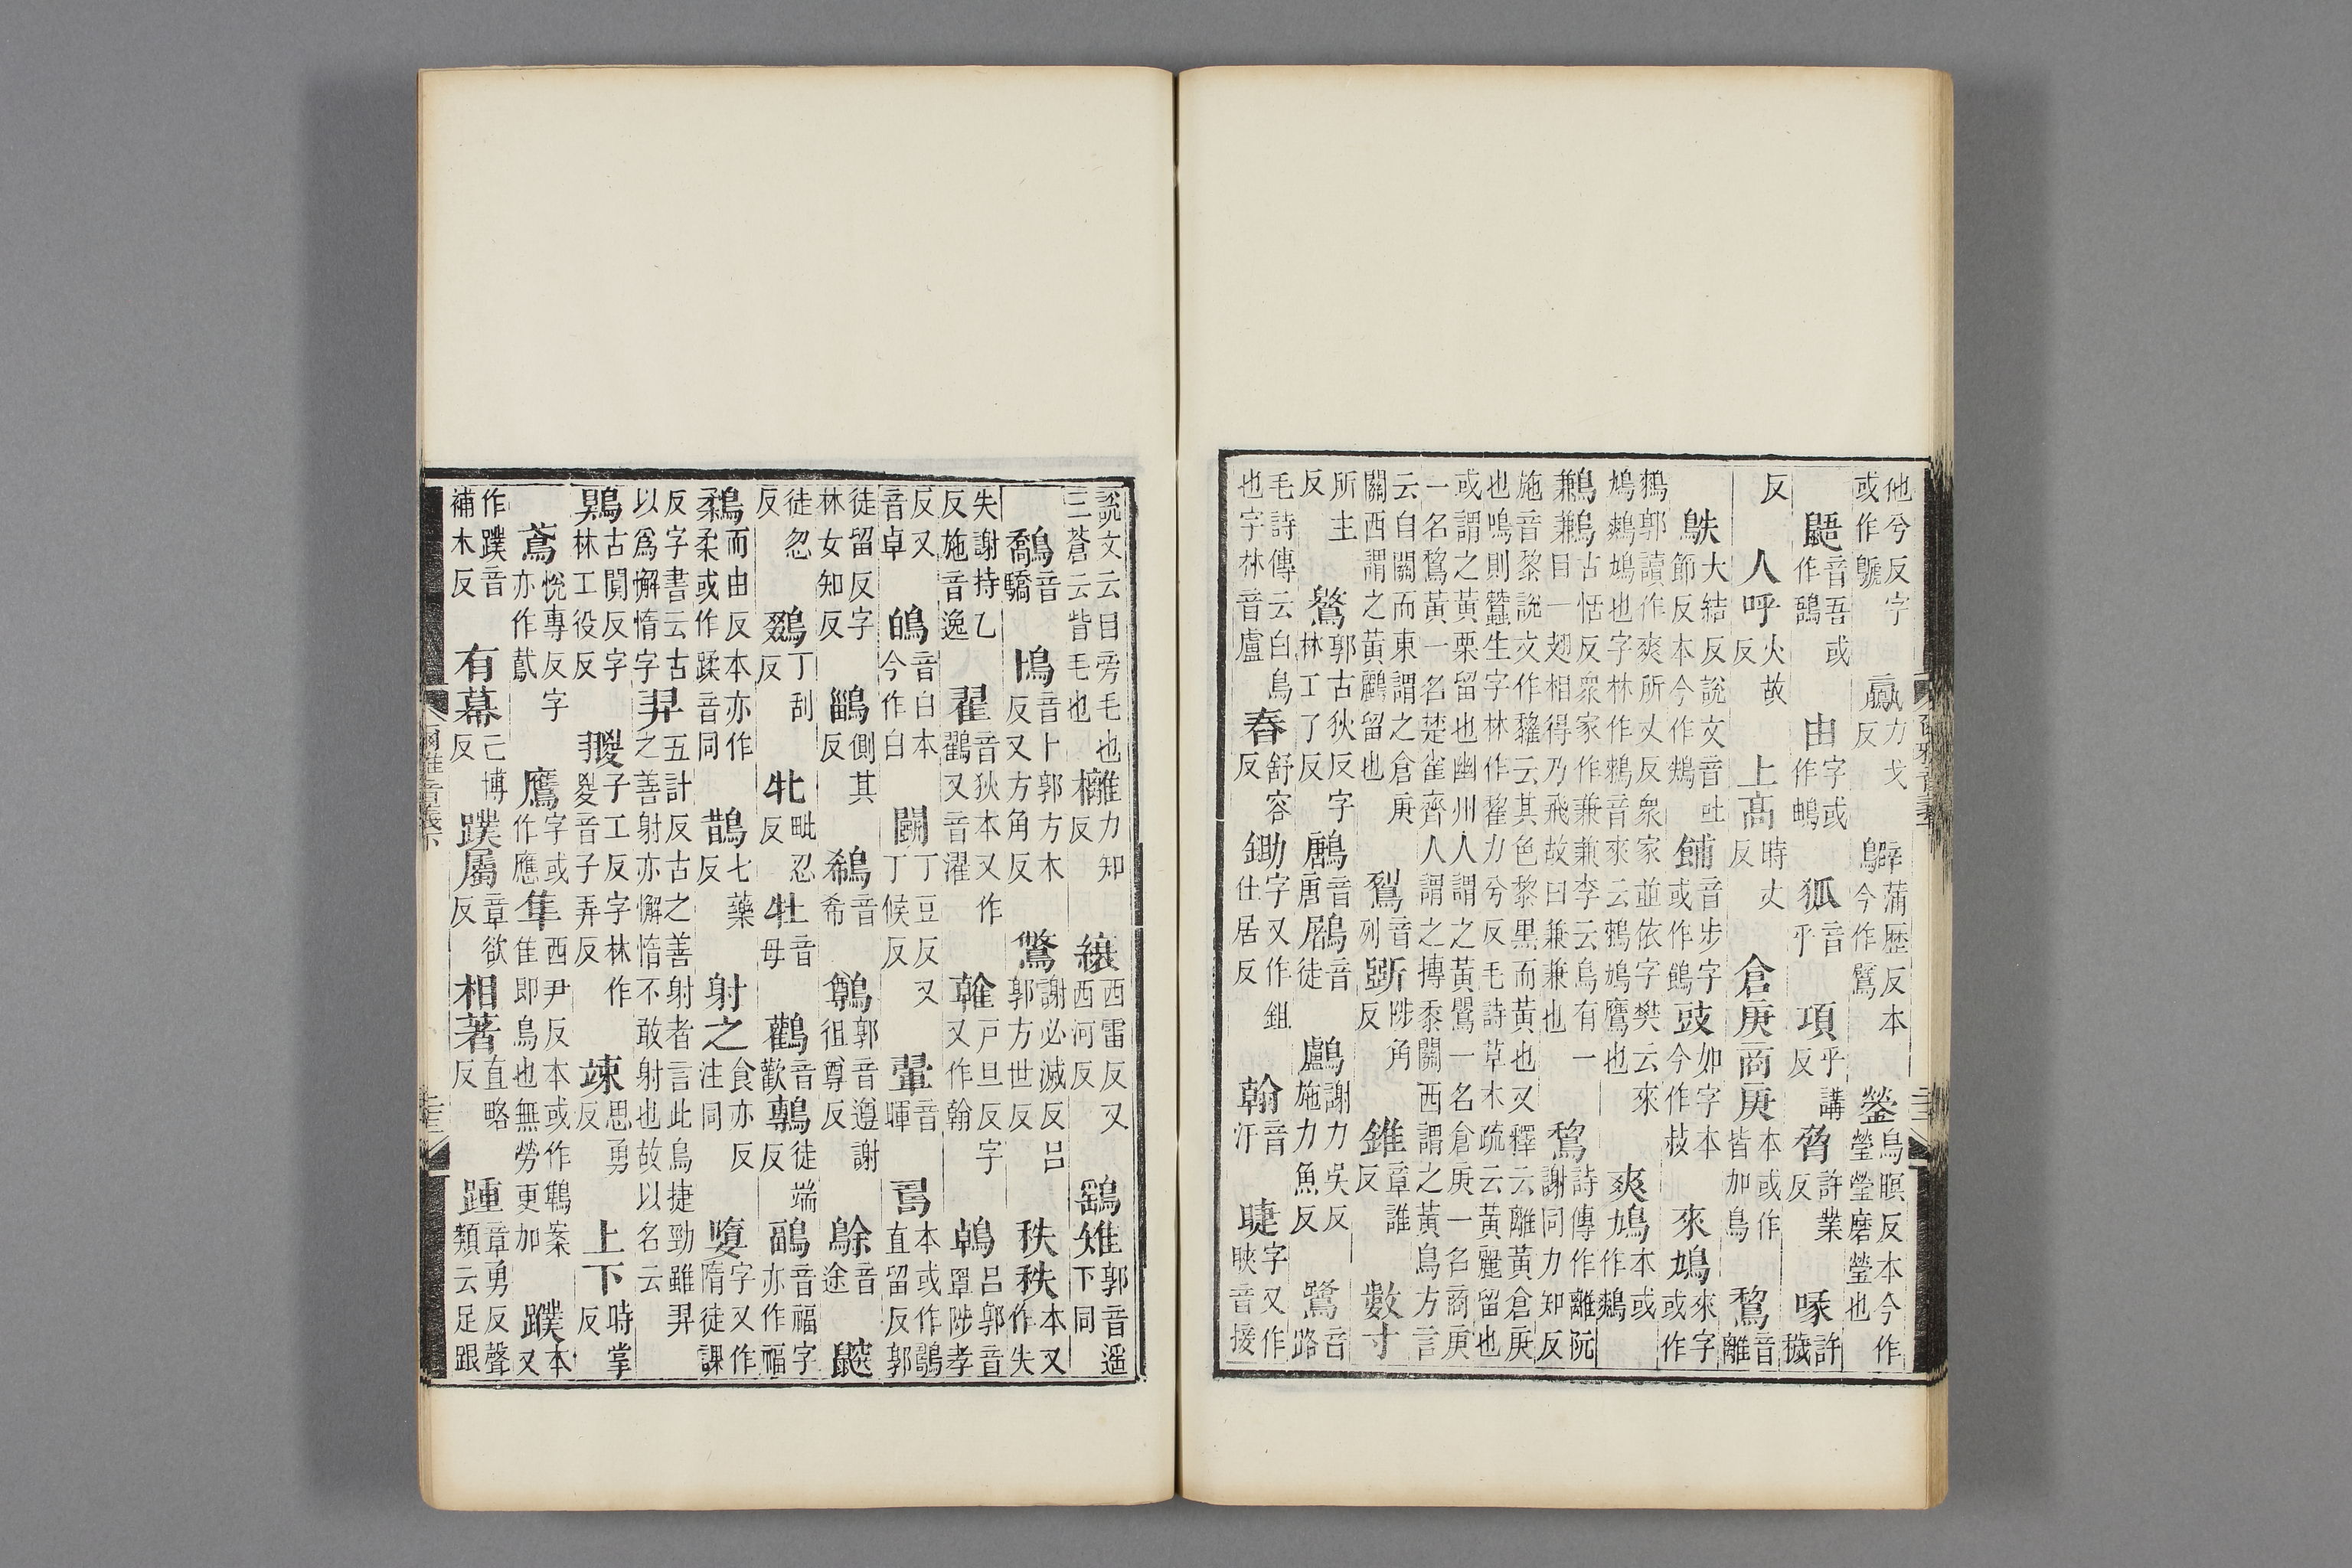 他兮反字或作鷈 鸁力戈反 鷿蒲歷反本今作鸊 鎣烏暝反本今作瑩瑩磨瑩也
鼯音吾或作䳱 由字或作鼬 狐音乎 項乎講反 脅許業反 喙許穢
反 人呼火故反 上高時丈反 倉庚商庚本或作皆加鳥 鵹音離
鴃大結反說文音吐節反本今作鴩 餔音步字或作鵏 豉如字本今作䜴 來鳩來字或作
鶆郭讀作爽所丈反衆家並依字樊云來鳩鶆鳩也字林作鶆音來云鶆鳩鷹也 爽鳩本或作鷞
鶼鶼古恬反衆家作兼兼李云鳥有一目一翅相得乃飛故曰兼兼也 鵹詩傳作離阮謝同力知反
施音黎說文作雞云其色黎黑而黃也又釋云離黃倉庚也鳴則蠶生字林作雞力兮反毛詩草木疏云黃麗留也
或謂之黃栗留也幽州人謂之黃鸎一名倉庚一名商庚一名鵹黃一名楚雀齊人謂之摶黍關西謂之黃鳥方言
云自關而東謂之倉庚關西謂之黃鸝留也 鴷音列 斲陟角反 錐章誰反 數寸
所主反 鷔郭古狄反字林工了反 鶶音唐 鷵音徒 鸕謝力吳反施力魚反 鷺音路
毛詩傳云白鳥也字林音盧 舂舒容反 鋤字又作鉏仕居反 翰音汗 睫字又作䀹音接
說文云目旁毛也三蒼云眥毛也 䍦力知反 縗西雷反又西河反 鷂雉郭音遥下同
鷮音驕 鳪音卜郭方木反又方角反 鷩謝必滅反呂郭方世反 秩秩本又作失
失謝持乙反施音逸 翟音狄本又作鸐又音濯 雗戶旦反字又作翰 鵫呂郭音罩陟孝
反又音卓 鳭音白本今作白 鬭丁豆反又丁候反 翬音暉 𠷎本或作鷊直留反郭
徒留反字林女知反 鶅側其反 鵗音希 鷷郭音遵謝徂尊反 鵌音途 鼵
徒忽反 鵽丁刮反 牝毗忍反 牡音母 鸛音歡 鷒徒端反 鶝音福字亦作福
鶔而由反本亦作柔或作蹂音同 鵲七藥反 射之食亦反注同 嫷字又作隋徒課
反字書云古以爲懈惰字 羿五計反古之善射者言此鳥捷勁雖羿之善射亦懈惰不敢射也故以名云
鶪古闃反字林工役反 翪子工反字林作猣音子弄反 竦思勇反 上下時掌反
鳶悅專反字亦作䳒 鷹字或作應 隼西尹反本或作鵻案隹即鳥也無勞更加 蹼本又
作蹼音補木反 有幕亡博反 蹼屬章欲反 相著直略反 踵章勇反聲類云足跟